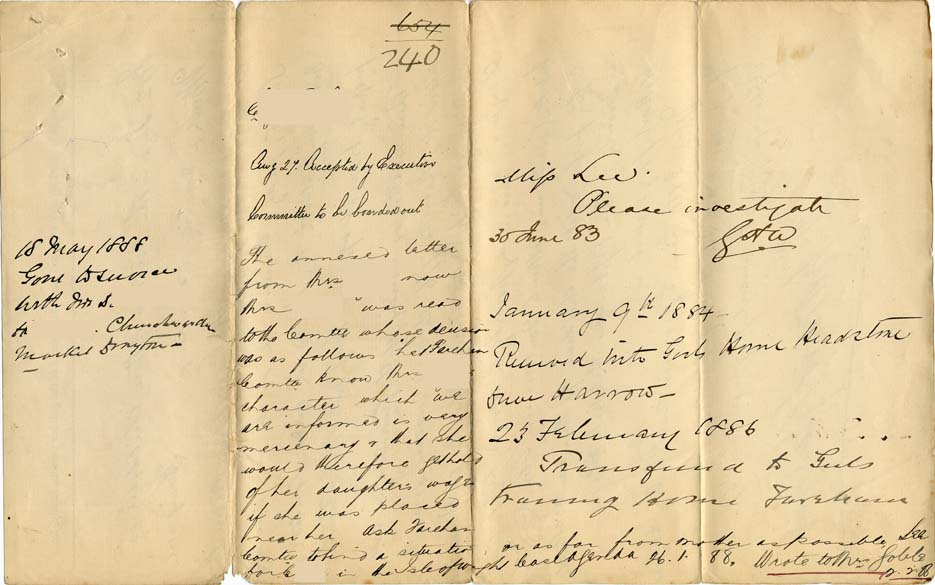 18 May 1888
Gone to service
with Mrs S.
Churchwarden
Market Drayton
654
240
Aug 27. Accepted by Executive
Committee to be boarded out
The annexed letter
from Mrs now
Mrs " was read
to the Comtee whose decision
was as follows "let Fareham
Comtee know Mrs "
character which "we
are informed is very
mercenary & that she
would therefore get hold
of her daughters wages
if she was placed
near her Ask Fareham
Comtee to find a situation
for in the Isle of Wight
or as far from mother as possible. See
Case Agenda 26.1.88. Wrote to Mrs
2.2.88
Miss Lee.
Please investigate
30 June 83
January 9th 1884
Received into Girls Home Headstone
Drive Harrow
23 February 1886
Transferred to Girls
Training Home Fareham